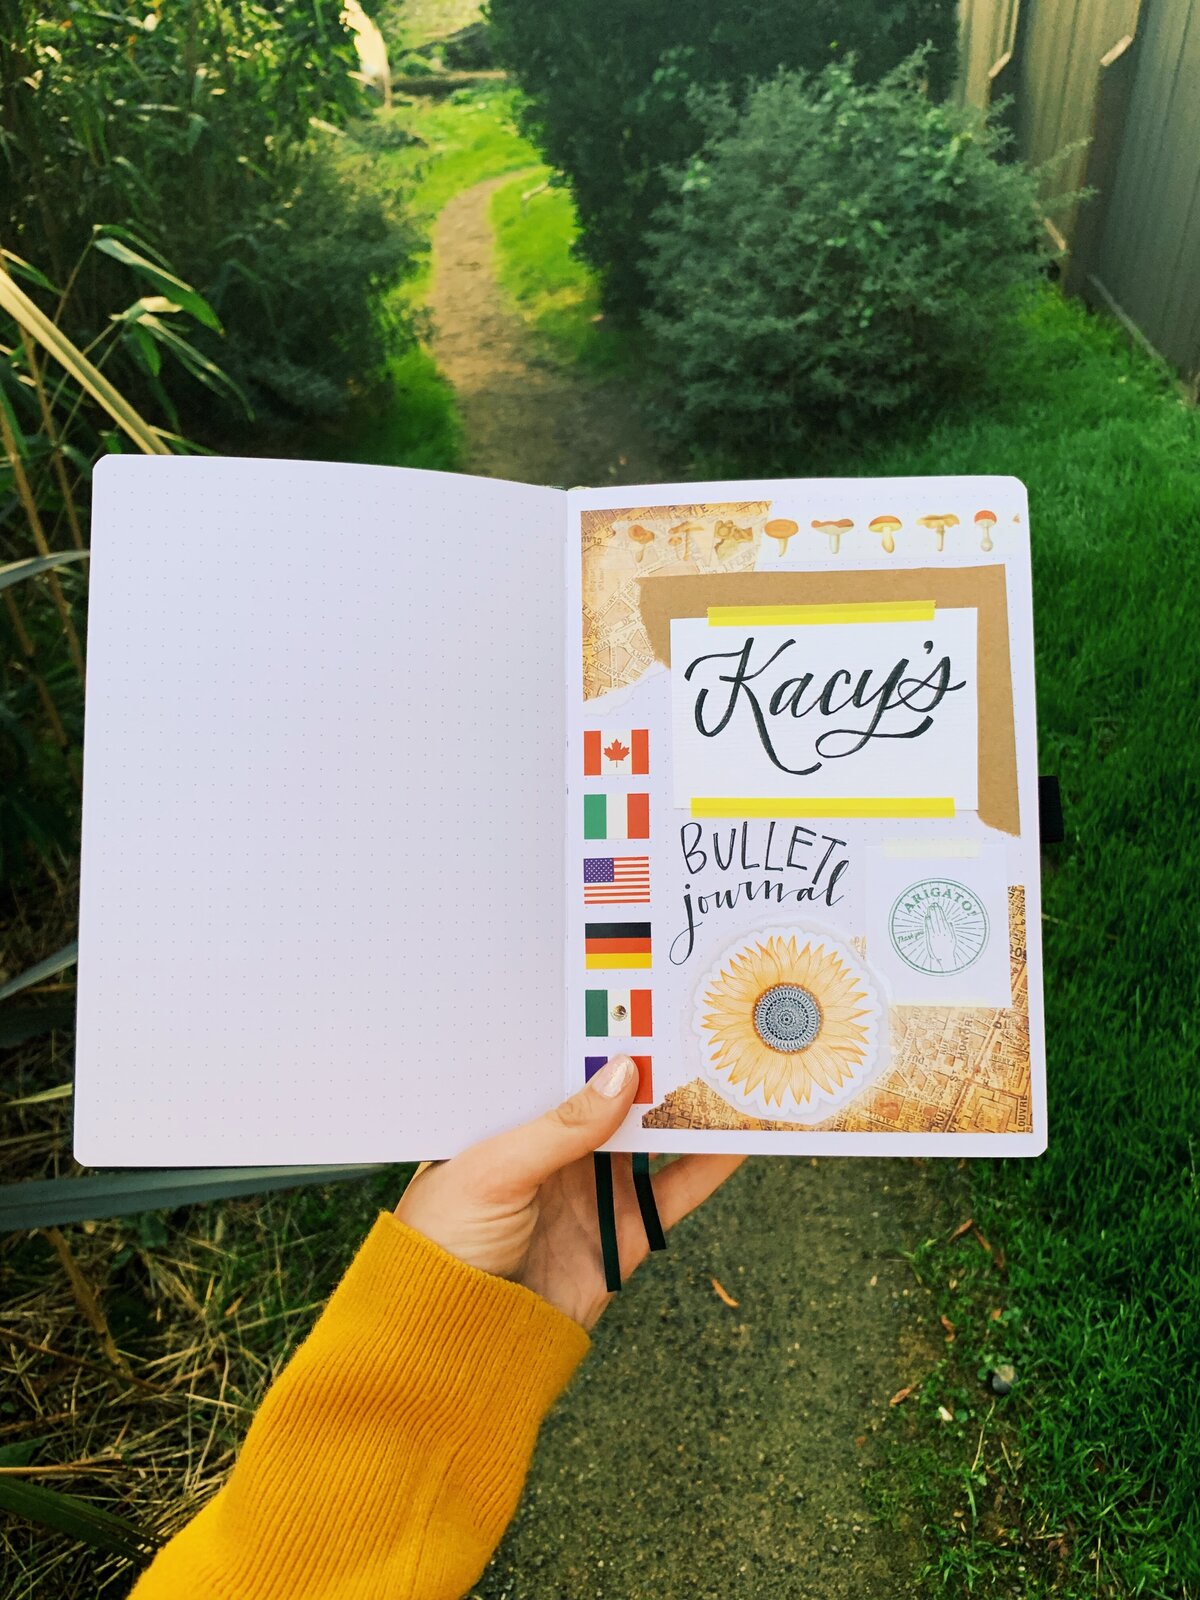 Kacy's
BULLET
journal
ARIGATO!
Thank you
HONORE
LOUVRE